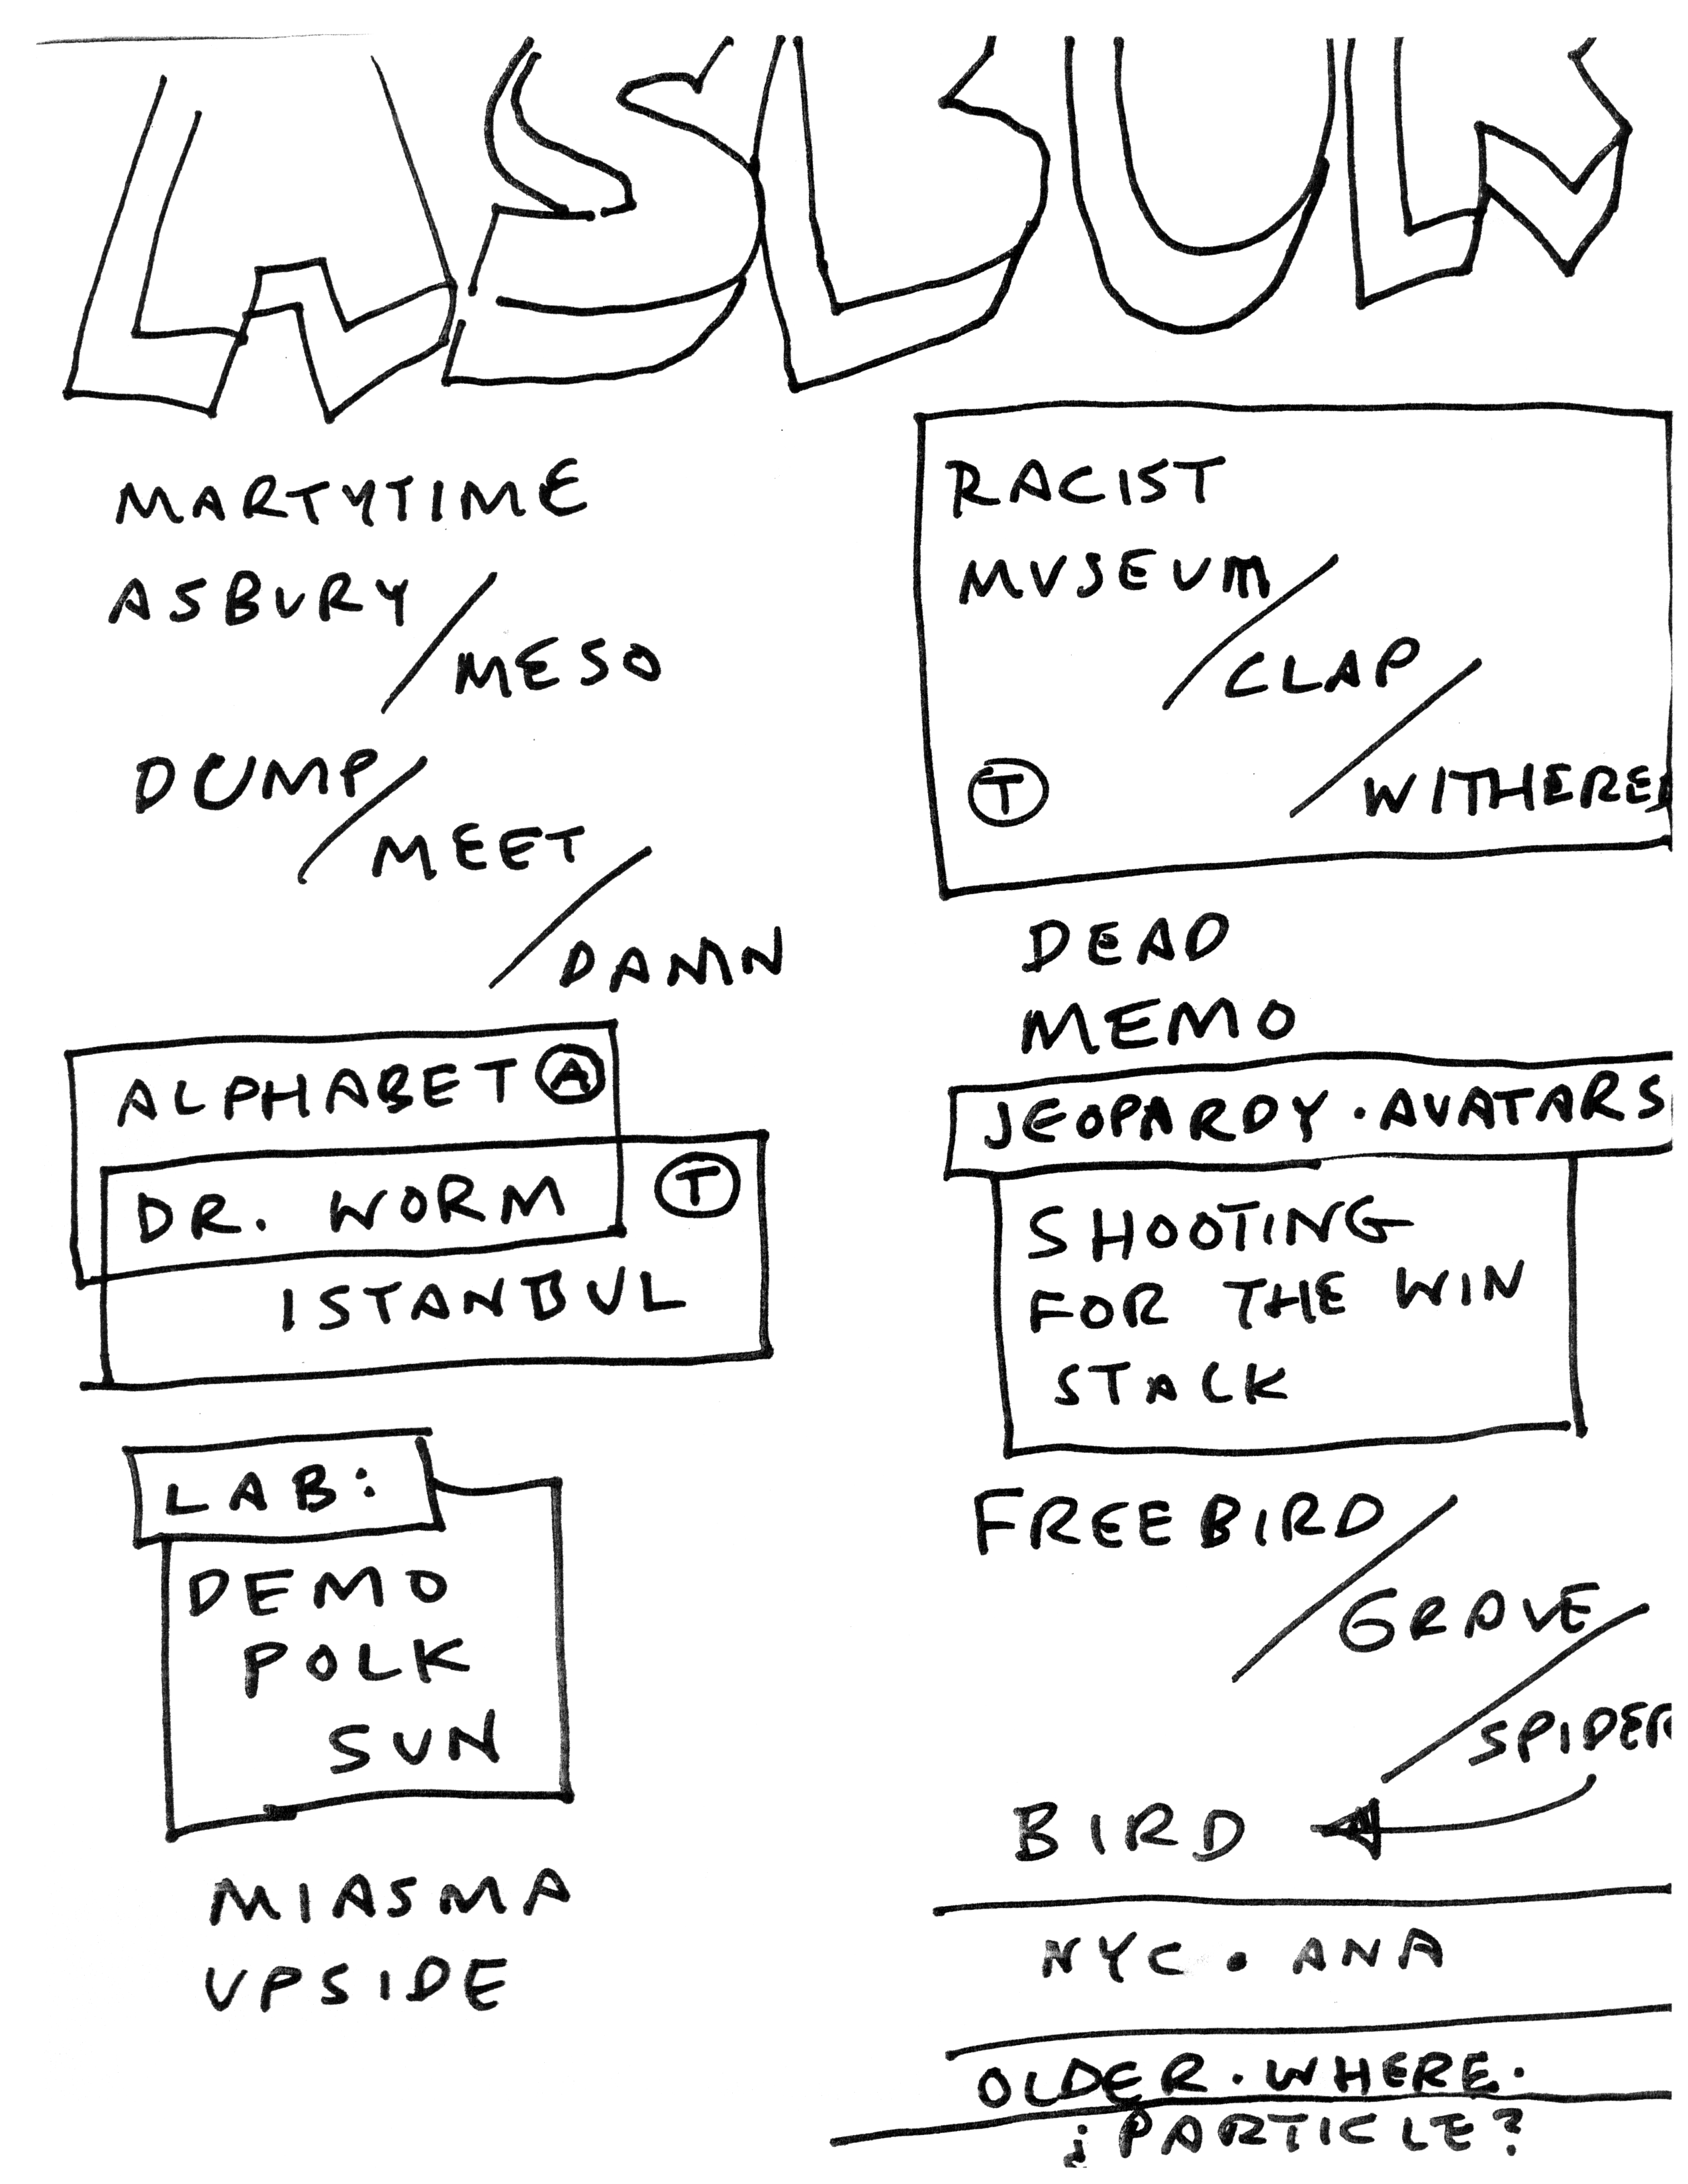 MARTYTIME
ASBURY
/MESO
DUMP/
MEET
/DAMN
ALPHABET A
DR. WORM T
ISTANBUL
LAB:
DEMO
POLK
SUN
MIASMA
UPSIDE
RACIST
MUSEUM
/CLAP
T /WITHERED
DEAD
MEMO
JEOPARDY · AVATARS
SHOOTING
FOR THE WIN
STACK
FREEBIRD
/GRAVE
/SPIDER
BIRD
NYC · ANA
OLDER · WHERE ·
¿PARTICLE?